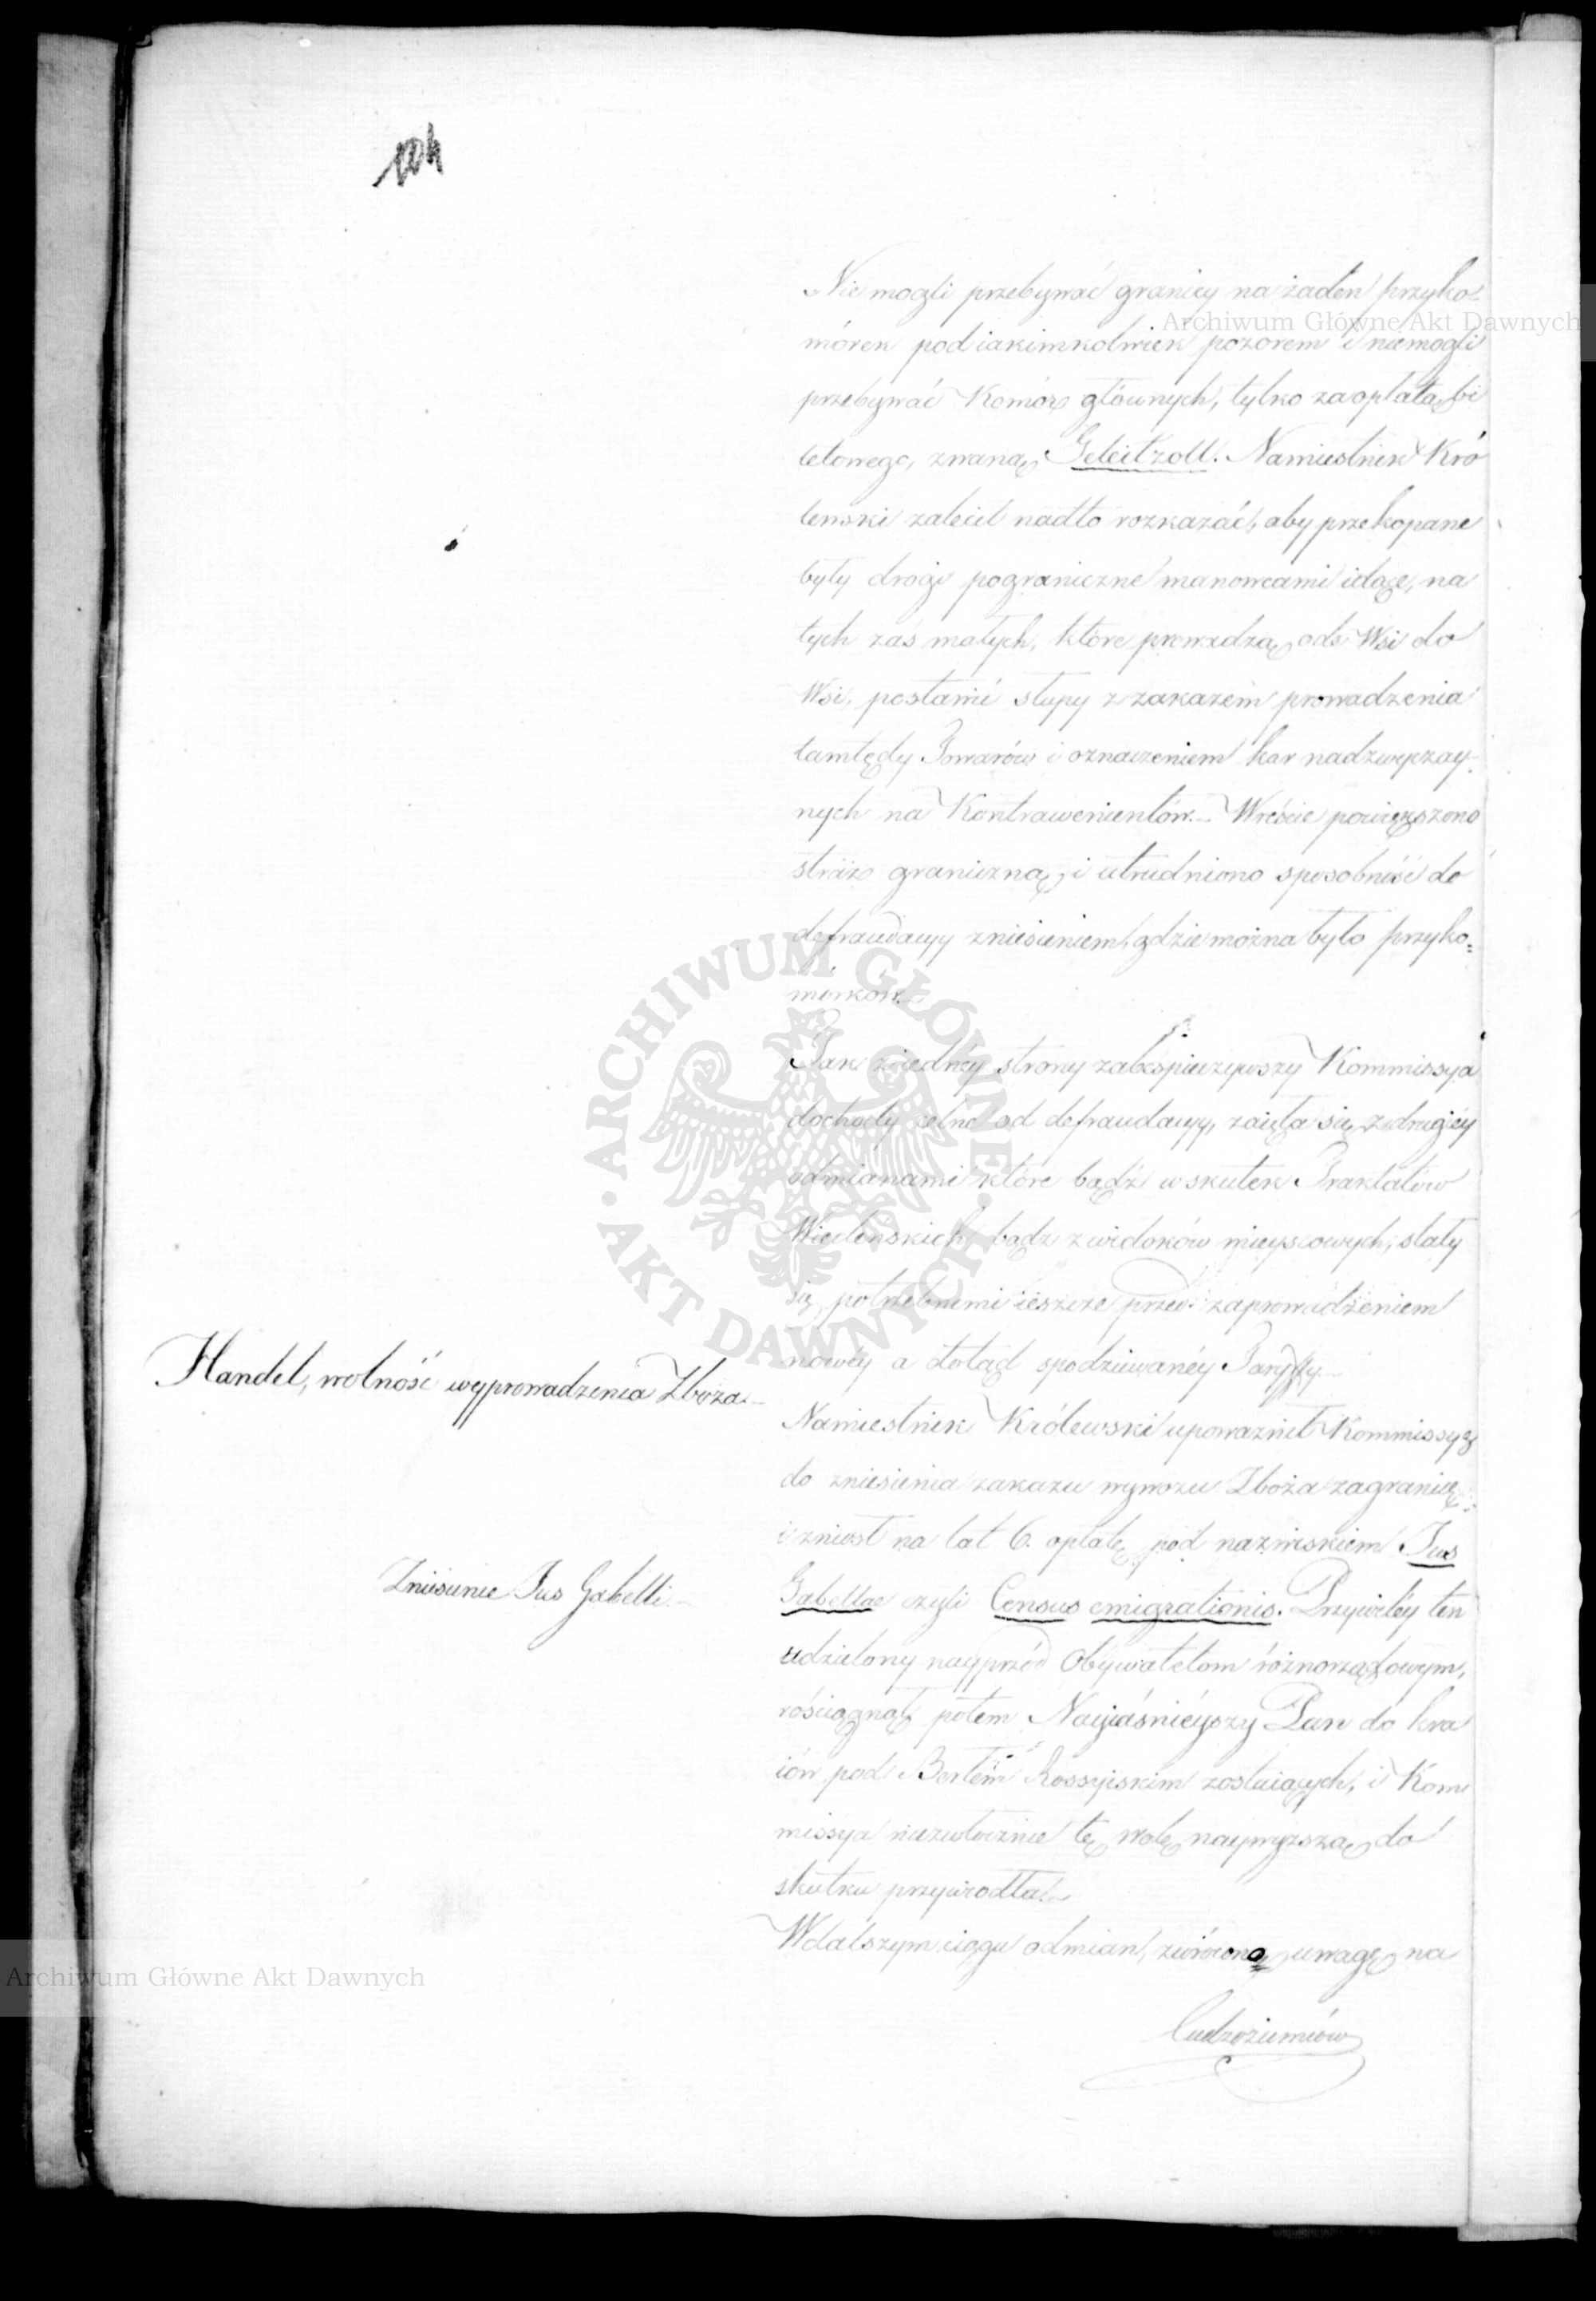 104
Nie mogli przebywać granicy na żaden przyko-
mórek pod iakimkolwiek pozorem i niemogli
przebywać Komór głównych, tylko za opłatą bi
letowego, zwaną Geleitzoll. Namiestnik Kró
lewski zalecił nadto rozkazać, aby przekopane
były drogi pograniczne manowcami idące, na
tych zaś małych, które prowadzą ode Wsi do
Wsi, postawić słupy z zakazem prowadzenia
tamtędy Towarów i oznaczeniem kar nadzwyczay-
nych na Kontrawenientów.- Wreście powiększono
straż graniczną, i utrudniono sposobność do
defraudacyy zniesieniem, gdzie można było przyko=
mórków.-
Tak z iednéy strony zabespieczywszy Kommissya
dochody celne od defraudacyy, zaięła się z drugiéy
odmianami które bądź w skutek Traktatów
Wiedenskich, bądź z widoków mieyscowych, stały
się potrzebnemi ieszcze przed zaprowadzeniem
nowéy a dotąd spodziewanéy Taryffy.-
Handel, wolność wyprowadzenia Zboża.-
Namiestnik Królewski upoważnił Kommissyę
do zniesienia zakazu wywozu Zboża zagranicę
i zniósł na lat 6. opłatę pod nazwiskiem Jus
Zniesienie Jus Gabelli.-
Gabellae czyli Census emigrationis. Przywiléy ten
udzielony nayprzód Obywatelom różnorządowym,
rościągnął potem Nayiaśniéyszy Pan do kra
iów pod Berłem Rossyiskim zostaiących, i Kom
missya niezwłocznie tę wolę naywyższą do
skutku przywiodła.-
W dalszym ciągu odmian, zwrócono uwagę na
Cudzoziemców
Archiwum Główne Akt Dawnych
ARCHIWUM GŁÓWNE
AKT DAWNYCH
Archiwum Główne Akt Dawnych